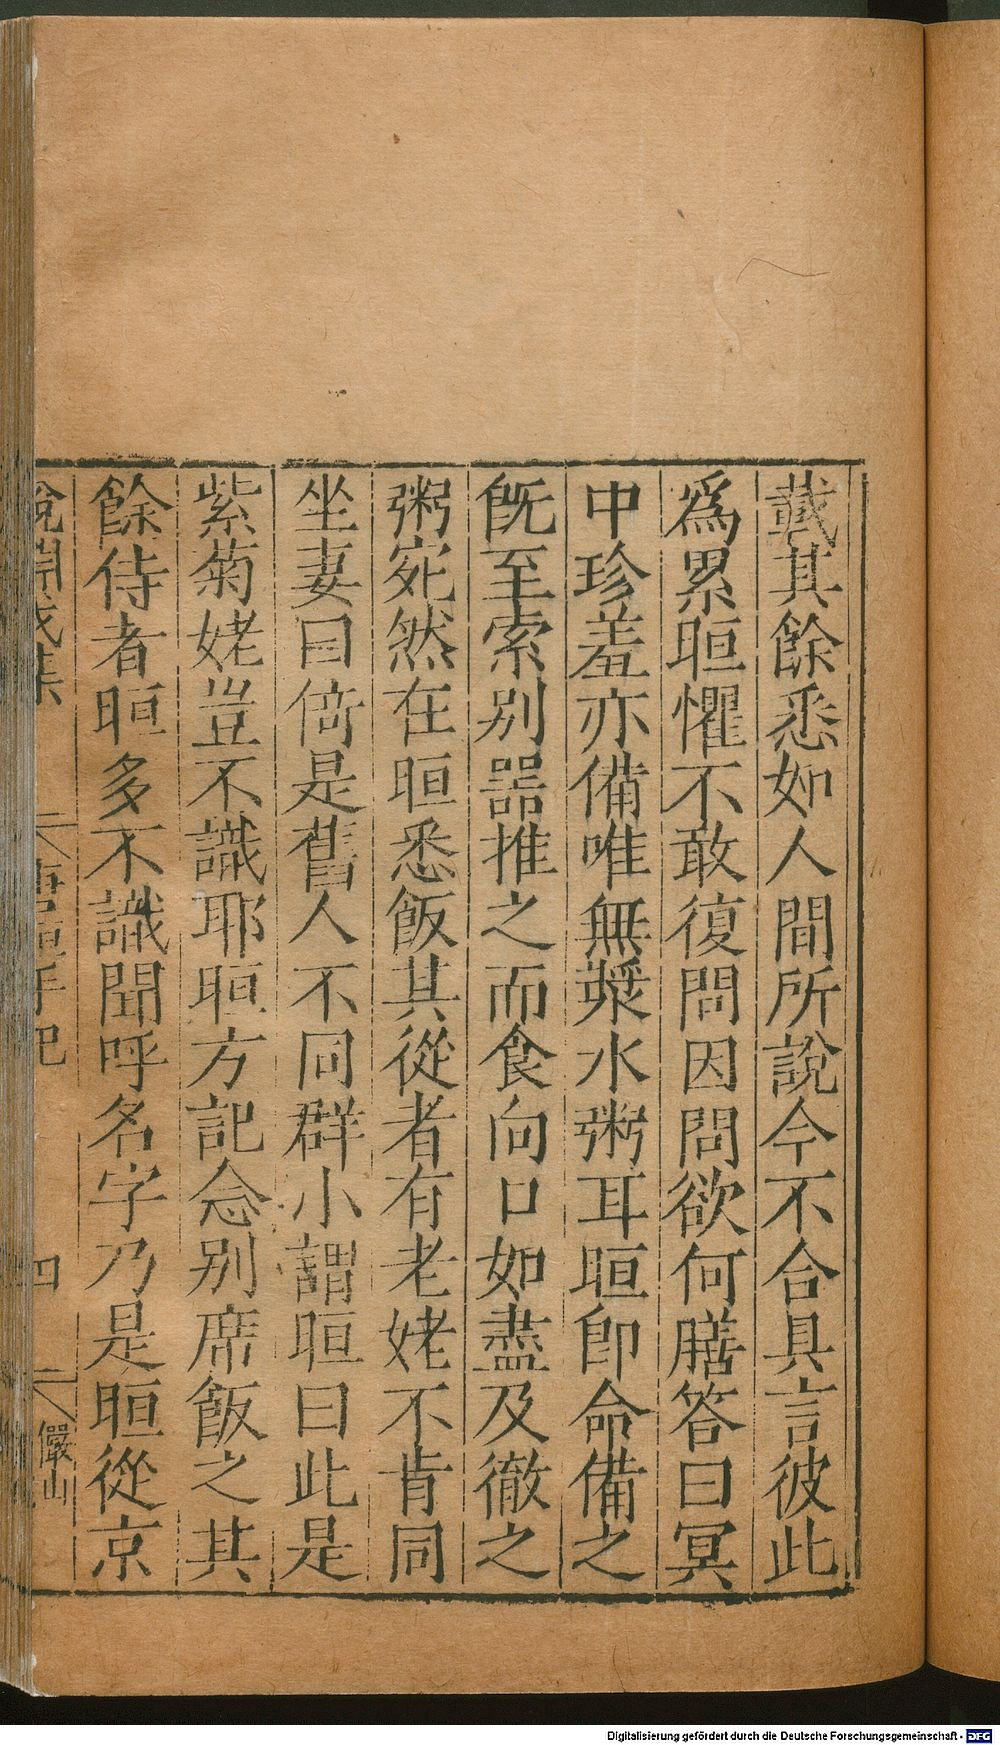 載其餘悉如人間所說今不合具言彼此
爲累晅懼不敢復問因問欲何膳答曰冥
中珍羞亦備唯無漿水粥耳晅卽命備之
旣至索別器推之而食向口如盡及徹之
粥宛然在晅悉飯其從者有老姥不肯同
坐妻曰倚是舊人不同群小謂晅曰此是
紫菊姥豈不識耶晅方記念別席飯之其
餘侍者晅多不識聞呼名字乃是晅從京
說淵戊集 唐晅手記 四 儼山
Digitalisierung gefördert durch die Deutsche Forschungsgemeinschaft - DFG